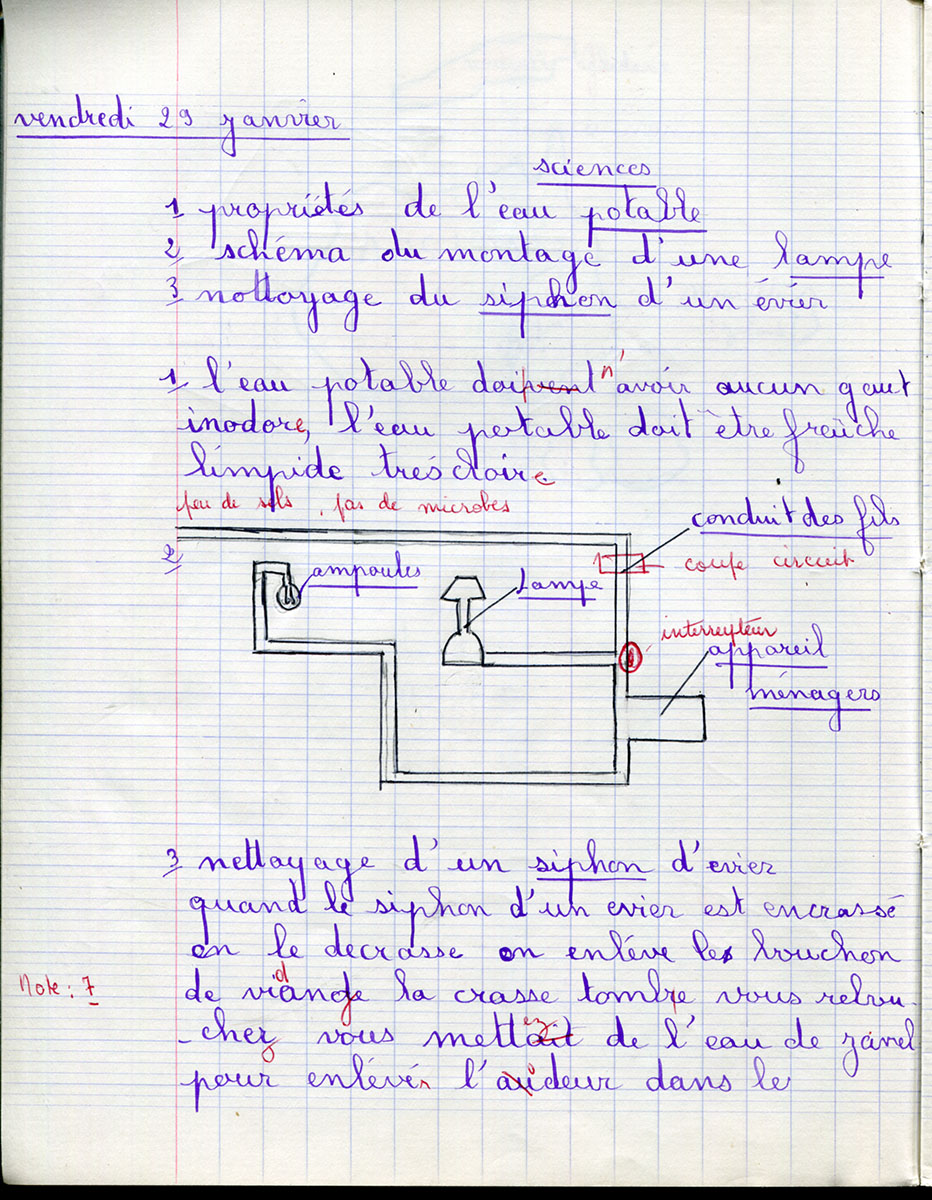 vendredi 29 janvier
sciences
1 propriétés de l'eau potable
2 schéma du montage d'une lampe
3 nottoyage du siphon d'un évier
1 l'eau potable doit n'avoir aucun gout
inodore, l'eau portable doit être freûche
limpide trés claire
peu de sels, pas de microbes
conduit des fils
2
ampoules
lampe
coupe circuit
interrupteur
appareil
ménagers
3 nettoyage d'un siphon d'evier
quand le siphon d'un evier est encrassé
on le decrasse on enlève le bouchon
Note : 7
de vidange la crasse tombe vous rebou-
-chez vous mettez de l'eau de zavel
pour enlever l'odeur dans le